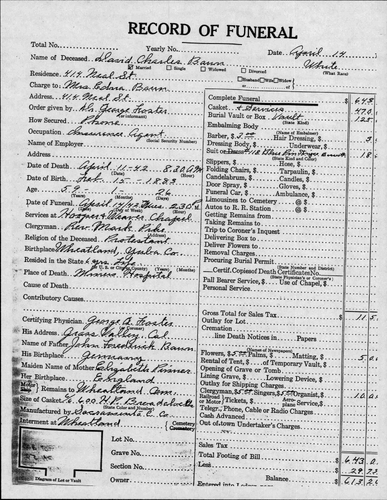 RECORD OF FUNERAL
Total No. Yearly No. Date April 14
Name of Deceased David Charles Baun White
Married Single Widowed Divorced (What Race)
Residence 414 Neal St. Husband Wife Widow
Charge to Mrs. Baun
Address 414 Neal St.
Order given by Dr. George Foster
(or informant)
How Secured Phone
Occupation Insurance Agent
(Social Security Number)
Name of Employer
Address
Date of Death April 11-42 8.30 A.M.
Date of Birth 1-1883
Age 59
Date of Funeral April 14, 42
Services at Hooper & Weaver Chapel
Clergyman Rev. Mark
Religion of the Deceased Protestant
Birthplace Wheatland, Co.
Resided in the State
(or U. S. or City or County) (Years) (Months)
Place of Death Miners Hospital
Cause of Death
Contributory Causes
Certifying Physician George A. Foster
His Address Grass Valley, Cal.
Name of Father John Frederick Baun
His Birthplace Germany
Maiden Name of Mother Elizabeth
Her Birthplace England
Remains to Wheatland Cem.
Size of Casket
(State Color and Number)
Manufactured by Sacramento C. Co.
Interment at Wheatland Cemetery Crematory
Lot No.
Grave No.
Section No.
Owner
Diagram of Lot or Vault
Complete Funeral 648
Casket & Services 470.
Burial Vault or Box Vault 125.
(State Kind)
Embalming Body
(Name of Embalmer)
Barber, $ Hair Dressing, $ 3.
Dressing Body, $ Underwear, $
Suit or Dress 18.
(State Kind and Color)
Slippers, $ Hose, $
Folding Chairs, $ Tarpaulin, $
Candelabrum, $ Candles, $
Door Spray, $ Gloves, $
Funeral Car, $ Ambulance, $
Limousines to Cemetery @ $
Autos to R. R. Station @ $
Getting Remains from
Taking Remains to
Trip to Coroner's Inquest
Delivering Box to
Deliver Flowers to
Removal Charges
Procuring Burial Permit
(State Number and District)
Certif. Copies of Death Certificates No.
(State Physician's or Coroner's)
Pall Bearer Service $ Use of Chapel, $
Personal Service
Gross Total for Sales Tax 11 5
Outlay for Lot
Cremation
line Death Notices in Papers
Flowers, $ 5.00 Palms, $ Matting, $ 5.0
Rental of Tent, $ of Temporary Vault, $
Opening of Grave or Tomb
Lining Grave, $ Lowering Device, $
Outlay for Shipping Charges
Clergyman, $ 5.00 Singers, $ Organist, $ 10.0
Railroad or Motor Tickets, $ Aeroplane Service, $
Telegr., Phone, Cable or Radio Charges
Cash Advanced
Out of town Undertaker's Charges
Sales Tax
Total Footing of Bill 643.0
Less 29.7
Entered into Ledger 613.2